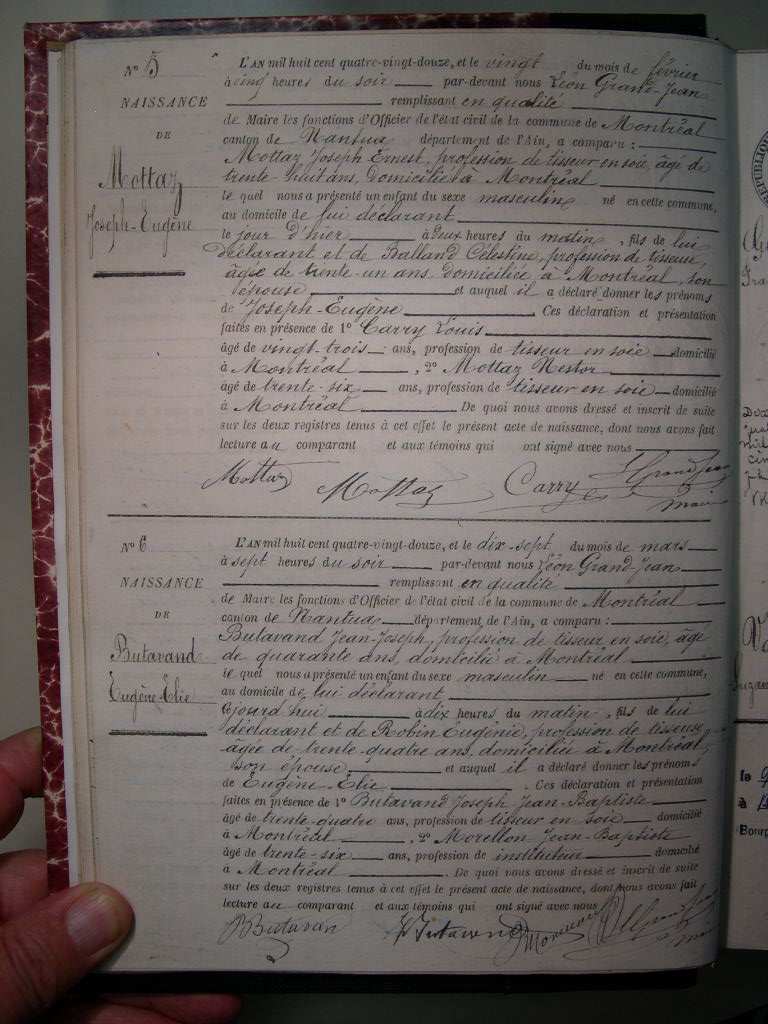 N° 5
NAISSANCE
DE
Mottaz
Joseph-Eugène
L'AN mil huit cent quatre-vingt-douze, et le vingt du mois de février
à cinq heures du soir par-devant nous Léon Grand-Jean
remplissant en qualité
de Maire les fonctions d'Officier de l'état civil de la commune de Montréal
canton de Nantua département de l'Ain, a comparu :
Mottaz Joseph Ernest, profession de tisseur en soie, âgé de
trente-huit ans, domicilié à Montréal
le quel nous a présenté un enfant du sexe masculin né en cette commune,
au domicile de lui déclarant
le jour d'hier à deux heures du matin, fils de lui
déclarant et de Balland Célestine, profession de tisseuse,
âgée de trente-un ans, domiciliée à Montréal, son
épouse et auquel il a déclaré donner les prénoms
de Joseph-Eugène Ces déclaration et présentation
faites en présence de 1° Carry Louis
âgé de vingt-trois ans, profession de tisseur en soie domicilié
à Montréal, 2° Mottaz Nestor
âgé de trente-six ans, profession de tisseur en soie domicilié
à Montréal De quoi nous avons dressé et inscrit de suite
sur les deux registres tenus à cet effet le présent acte de naissance, dont nous avons fait
lecture au comparant et aux témoins qui ont signé avec nous
Mottaz Mottaz Carry L Grand Jean
maire
N° 6
NAISSANCE
DE
Butavand
Eugène-Elie
L'AN mil huit cent quatre-vingt-douze, et le dix-sept du mois de mars
à sept heures du soir par-devant nous Léon Grand-Jean
remplissant en qualité
de Maire les fonctions d'Officier de l'état civil de la commune de Montréal
canton de Nantua département de l'Ain, a comparu :
Butavand Jean-Joseph, profession de tisseur en soie, âgé
de quarante ans, domicilié à Montréal
le quel nous a présenté un enfant du sexe masculin né en cette commune,
au domicile de lui déclarant
Ajourd'hui à dix heures du matin, fils de lui
déclarant et de Robin Eugénie, profession de tisseuse
âgée de trente-quatre ans, domiciliée à Montréal,
son épouse et auquel il a déclaré donner les prénoms
de Eugène-Elie. Ces déclaration et présentation
faites en présence de 1° Butavand Joseph Jean-Baptiste
âgé de trente-quatre ans, profession de tisseur en soie domicilié
à Montréal, 2° Morellon Jean-Baptiste
âgé de trente-six ans, profession de instituteur domicilié
à Montréal. De quoi nous avons dressé et inscrit de suite
sur les deux registres tenus à cet effet le présent acte de naissance, dont nous avons fait
lecture au comparant et aux témoins qui ont signé avec nous
Butavan